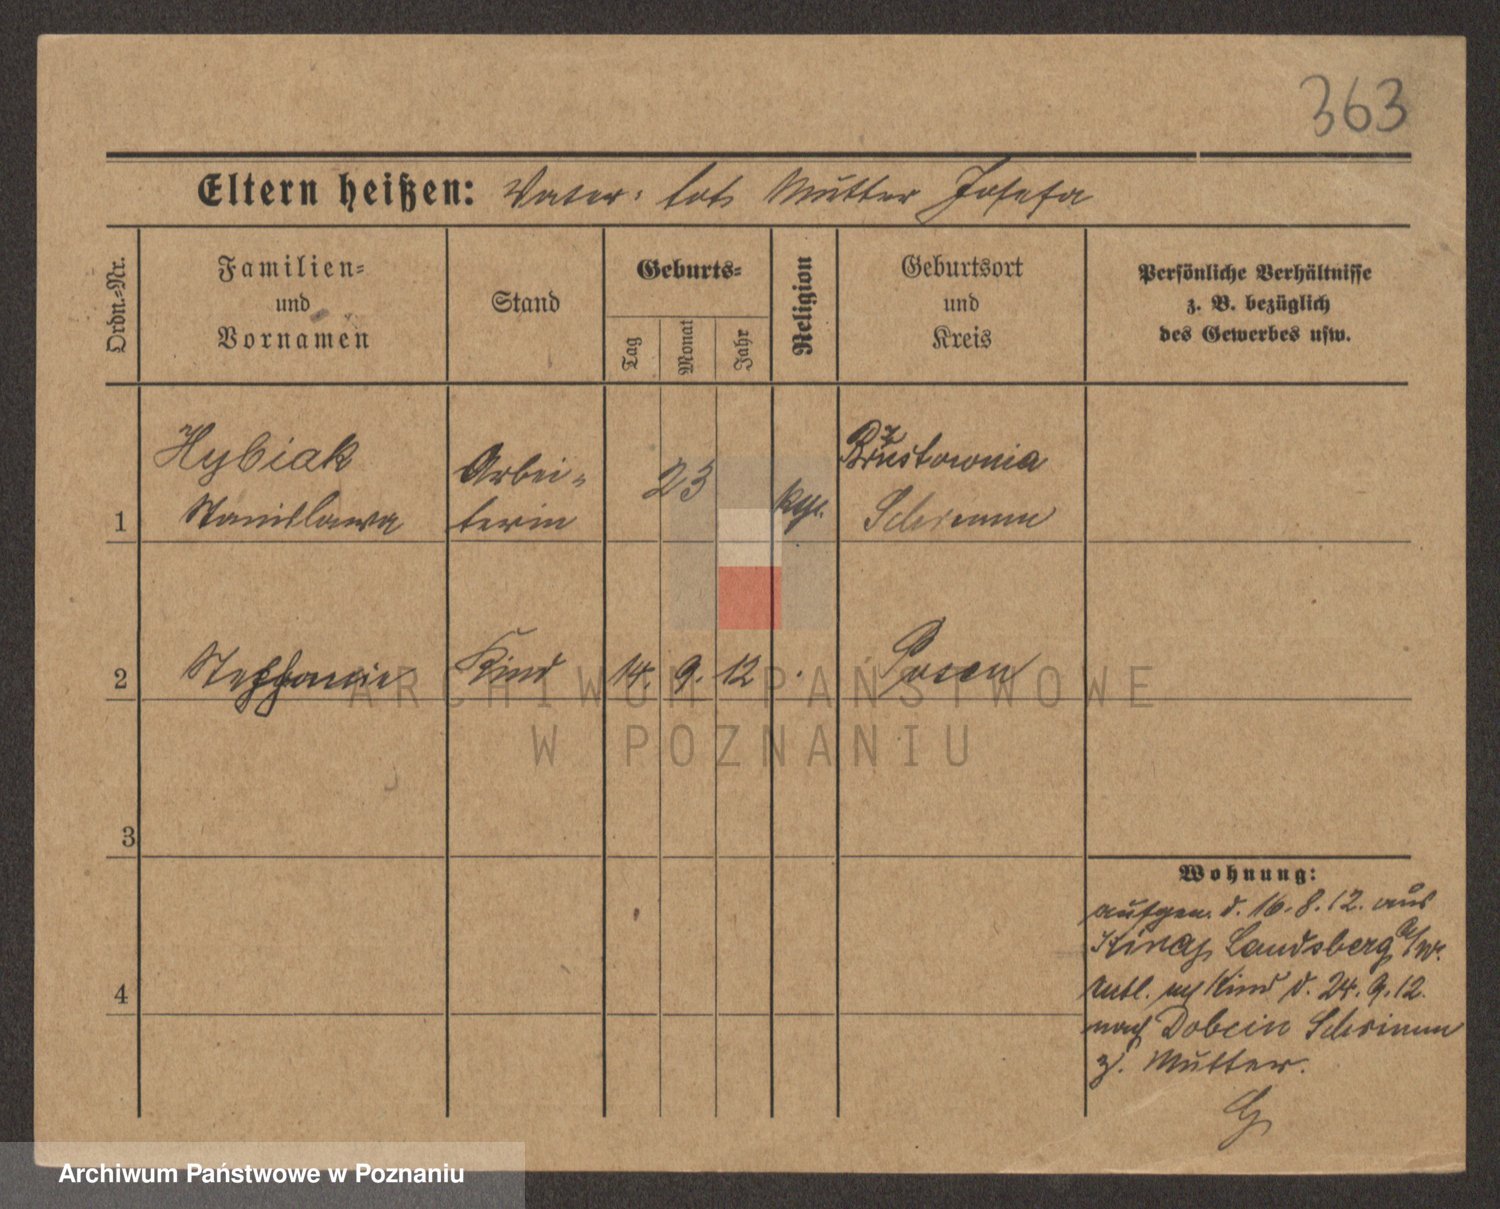 363
Eltern heißen: Vater: tot Mutter Josefa
Ordn.-Nr.
Familien-
und
Vornamen
Stand
Geburts-
Tag
Monat
Jahr
Religion
Geburtsort
und
Kreis
Persönliche Verhältnisse
z. B. bezüglich
des Gewerbes usw.
1
Hybiak
Stanislawa
Arbei-
terin
23
kth.
Brzustownia
Schrimm
2
Stephanie
Kind
14. 9. 12
Posen
3
4
Wohnung:
aufgen. d. 16. 8. 12. aus
Landsberg a/W.
Kind d. 24. 9. 12.
nach Dobcin Schrimm
z. Mutter.
ARCHIWUM PAŃSTWOWE
W POZNANIU
Archiwum Państwowe w Poznaniu